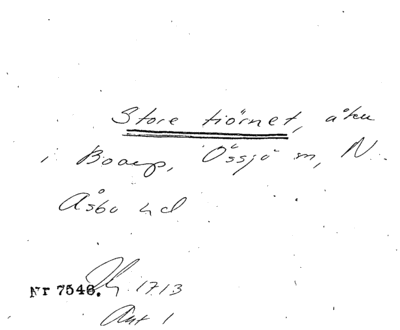 Store tiörnet, åker
i Boarp, Össjö sn, N.
Åsbo hd
Nr 7546. 1713
Akt 1